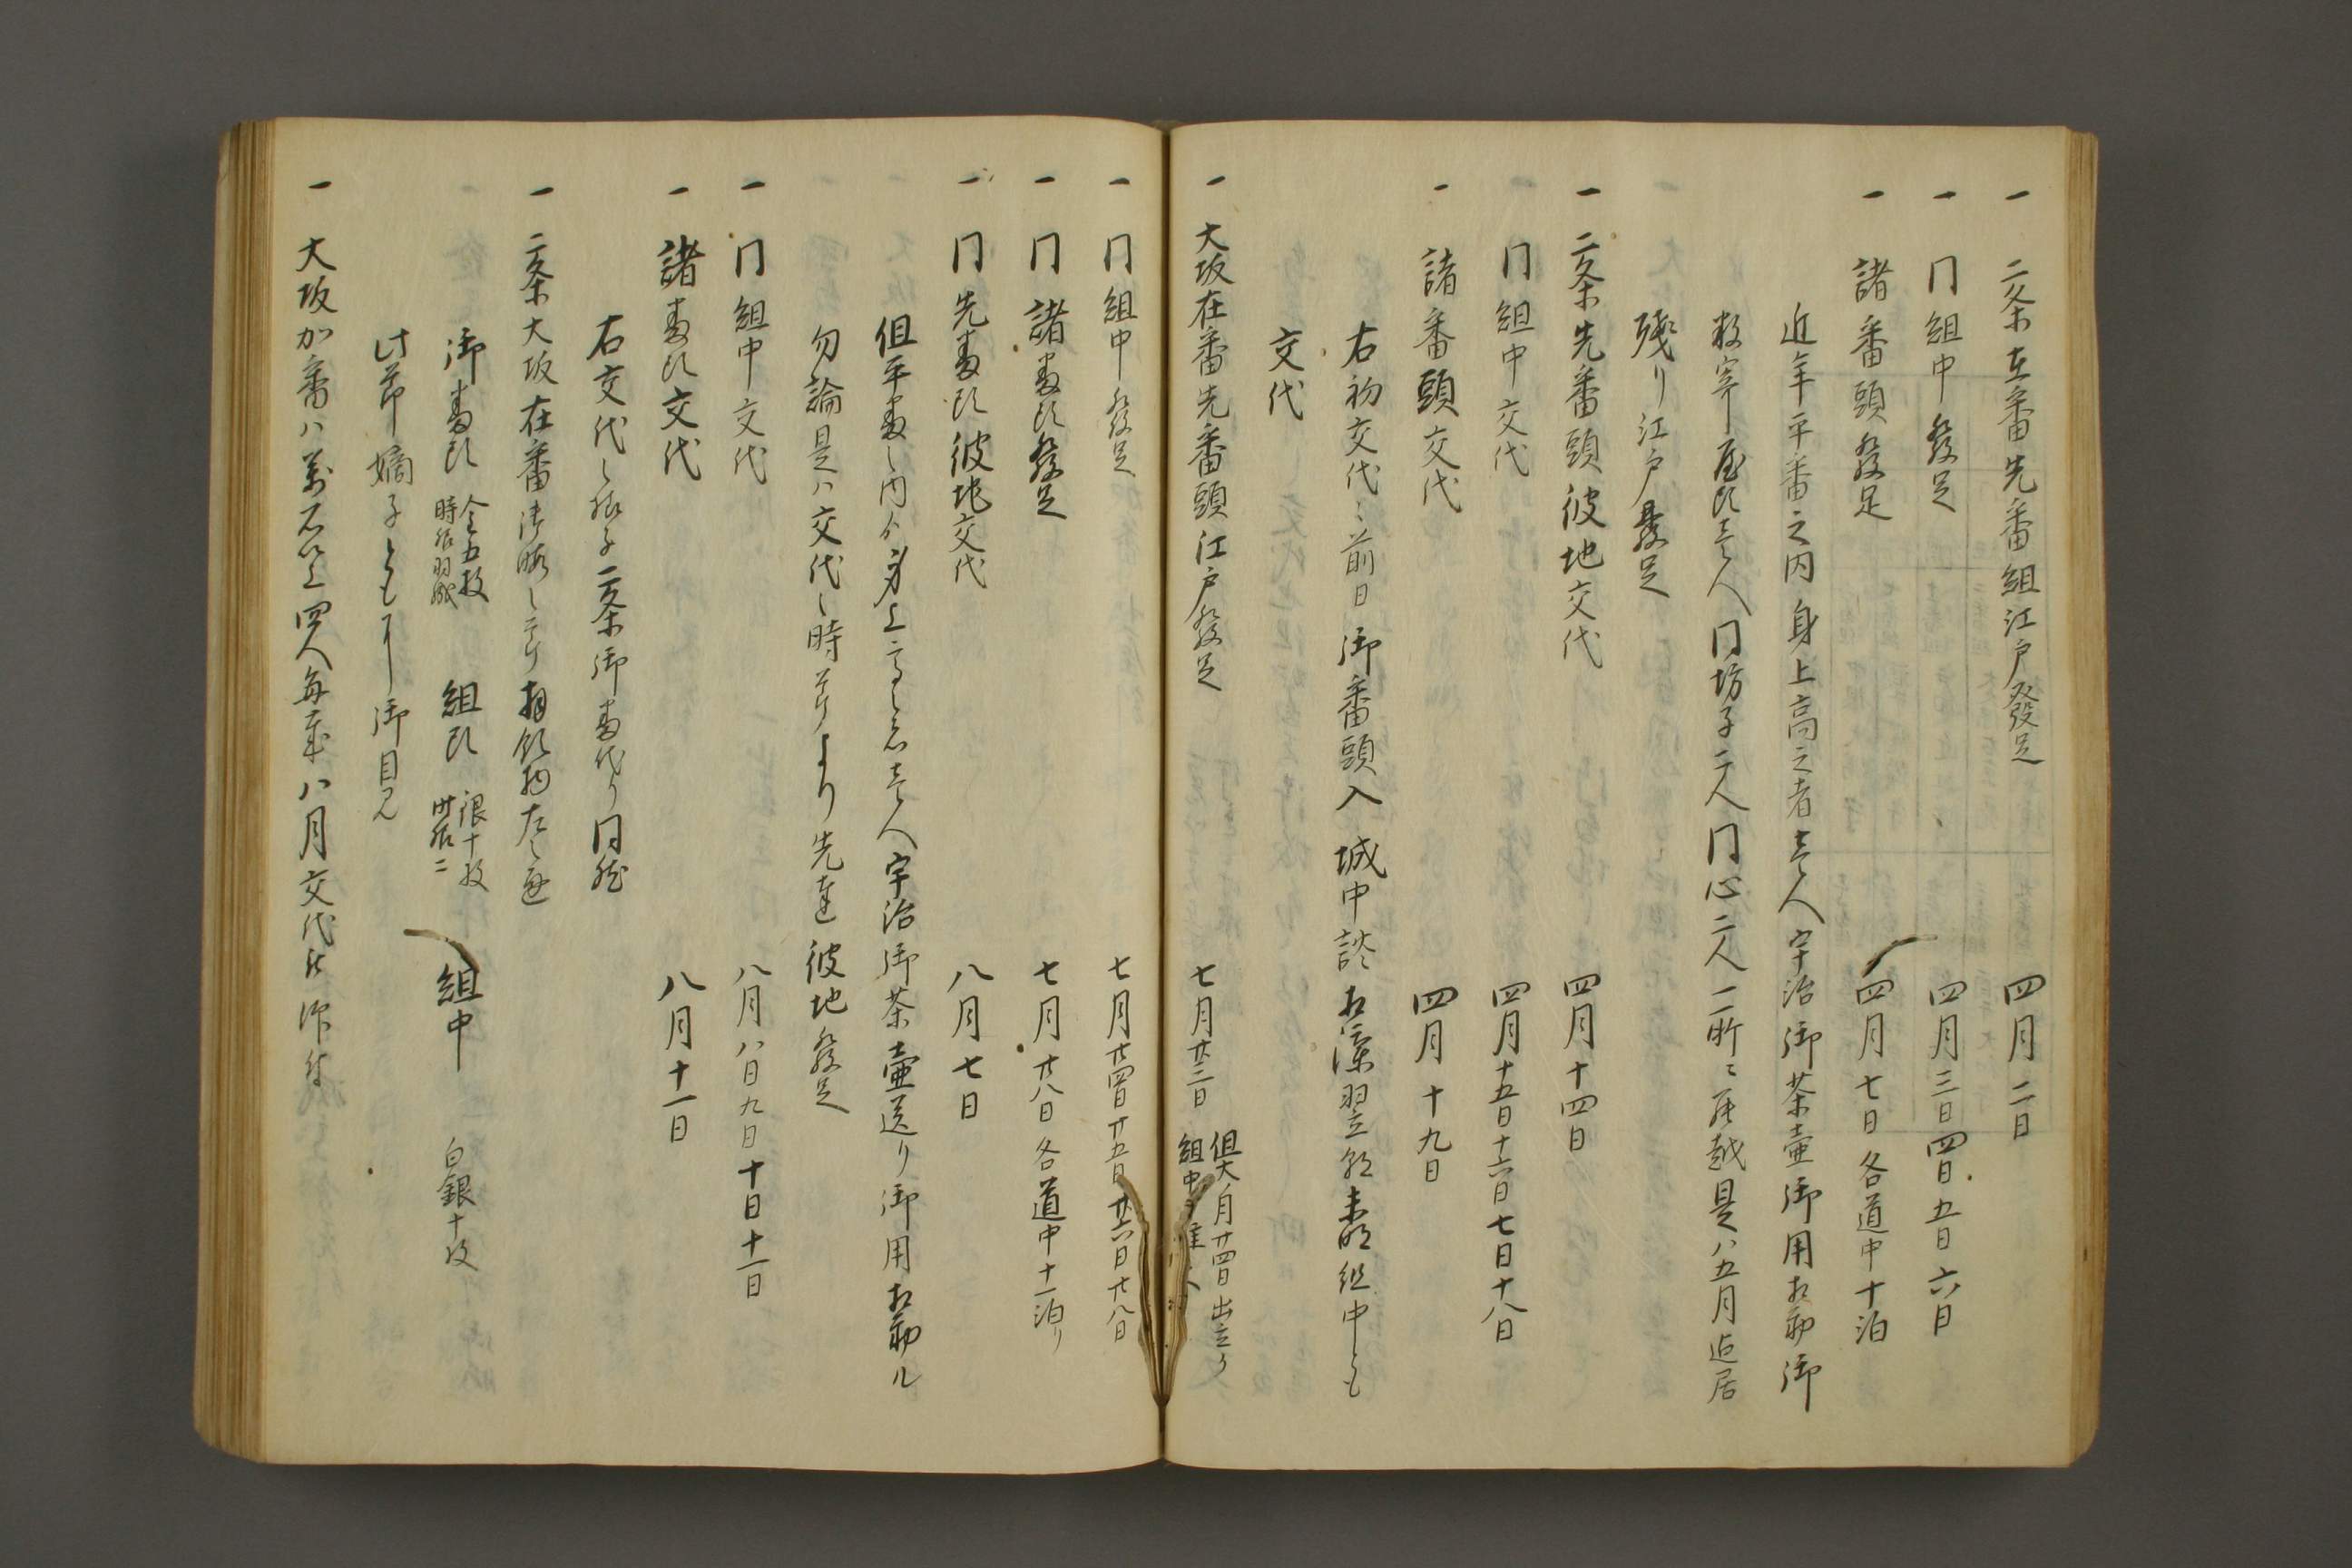 一 二条在番先番組江戸發足 四月二日
一 同組中發足 四月三日四日五日六日
一 諸番頭發足 四月七日各道中十泊
近年平番之内身上高之者壱人宇治御茶壷御用相勤御
数寄屋頭壱人同坊子二人同心二人一所ニ罷越是ハ五月迄居
残り江戸發足
一 二条先番頭彼地交代 四月十四日
一 同組中交代 四月十五日十六日七日十八日
一 諸番頭交代 四月十九日
右初交代之前日御番頭入城中談相済翌朝未明組中とも
交代
一 大坂在番先番頭江戸發足 七月廿二日 但大ノ月廿四日出立ゟ
組中
一 同組中發足 七月廿四日廿五日廿六日廿八日
一 同諸番頭發足 七月廿八日各道中十一泊り
一 同先番頭彼地交代 八月七日
但平番之内ゟ身上高之者壱人宇治御茶壷送り御用相勤ル
勿論是ハ交代之時節より先達彼地發足
一 同組中交代 八月八日九日十日十一日
一 諸番頭交代 八月十一日
右交代之様子二条御番代り同然
一 二条大坂在番御暇之節拝領物左之通
御番頭 金五枚 時服羽織 組頭 銀十枚 時服二 組中 白銀十枚
此節嫡子とも御目見
一 大坂加番ハ萬石以上四人毎年八月交代被仰付